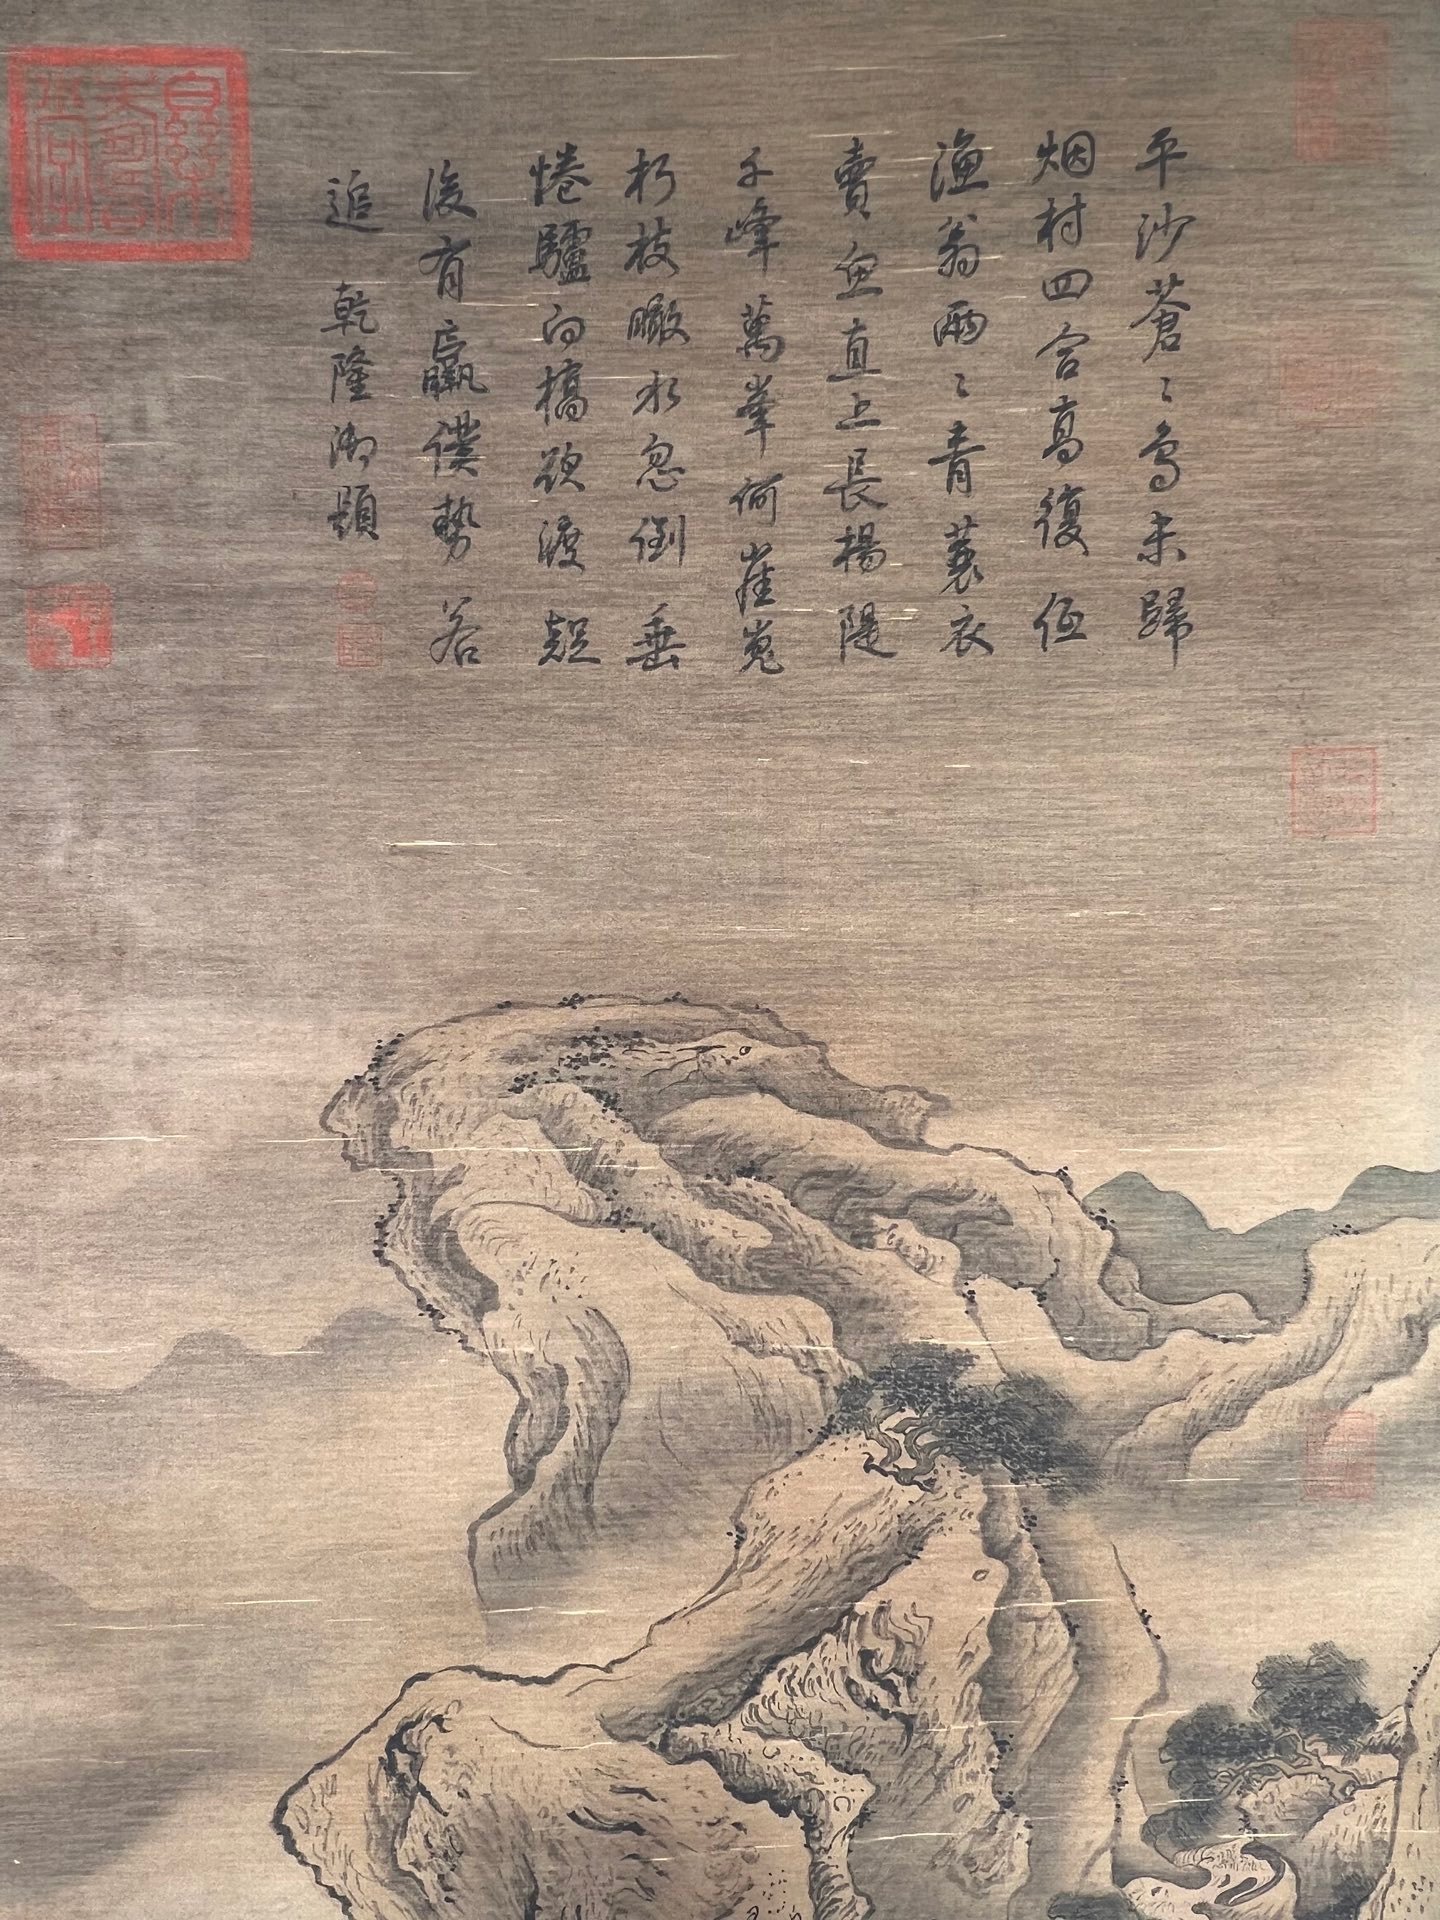 平沙蒼〻鳥未歸
烟村四合高復低
漁翁兩〻青蓑衣
賣魚直上長楊隄
千峰萬峯何崔嵬
朽枝瞰水忽倒垂
惓驢向橋欲渡疑
後有羸僕勢若
追 乾隆御題